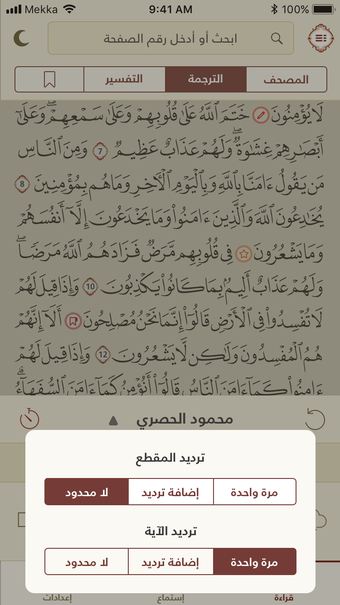 Mekka 9:41 AM 100%
ابحث أو أدخل رقم الصفحة
المصحف الترجمة التفسير
لَا يُؤْمِنُونَ خَتَمَ ٱللَّهُ عَلَىٰ قُلُوبِهِمْ وَعَلَىٰ سَمْعِهِمْ ۖ وَعَلَىٰ
أَبْصَٰرِهِمْ غِشَٰوَةٌ ۖ وَلَهُمْ عَذَابٌ عَظِيمٌ 7 وَمِنَ ٱلنَّاسِ
مَن يَقُولُ ءَامَنَّا بِٱللَّهِ وَبِٱلْيَوْمِ ٱلْـَٔاخِرِ وَمَا هُم بِمُؤْمِنِينَ 8
يُخَٰدِعُونَ ٱللَّهَ وَٱلَّذِينَ ءَامَنُوا۟ وَمَا يَخْدَعُونَ إِلَّآ أَنفُسَهُمْ
وَمَا يَشْعُرُونَ فِى قُلُوبِهِم مَّرَضٌ فَزَادَهُمُ ٱللَّهُ مَرَضًا ۖ
وَلَهُمْ عَذَابٌ أَلِيمٌۢ بِمَا كَانُوا۟ يَكْذِبُونَ 10 وَإِذَا قِيلَ لَهُمْ
لَا تُفْسِدُوا۟ فِى ٱلْأَرْضِ قَالُوٓا۟ إِنَّمَا نَحْنُ مُصْلِحُونَ أَلَآ إِنَّهُمْ
هُمُ ٱلْمُفْسِدُونَ وَلَٰكِن لَّا يَشْعُرُونَ 12 وَإِذَا قِيلَ لَهُمْ
ءَامِنُوا۟ كَمَآ ءَامَنَ ٱلنَّاسُ قَالُوٓا۟ أَنُؤْمِنُ كَمَآ ءَامَنَ ٱلسُّفَهَآءُ ۗ
محمود الحصري
ترديد المقطع
مرة واحدة إضافة ترديد لا محدود
ترديد الآية
مرة واحدة إضافة ترديد لا محدود
قراءة إستماع إعدادات